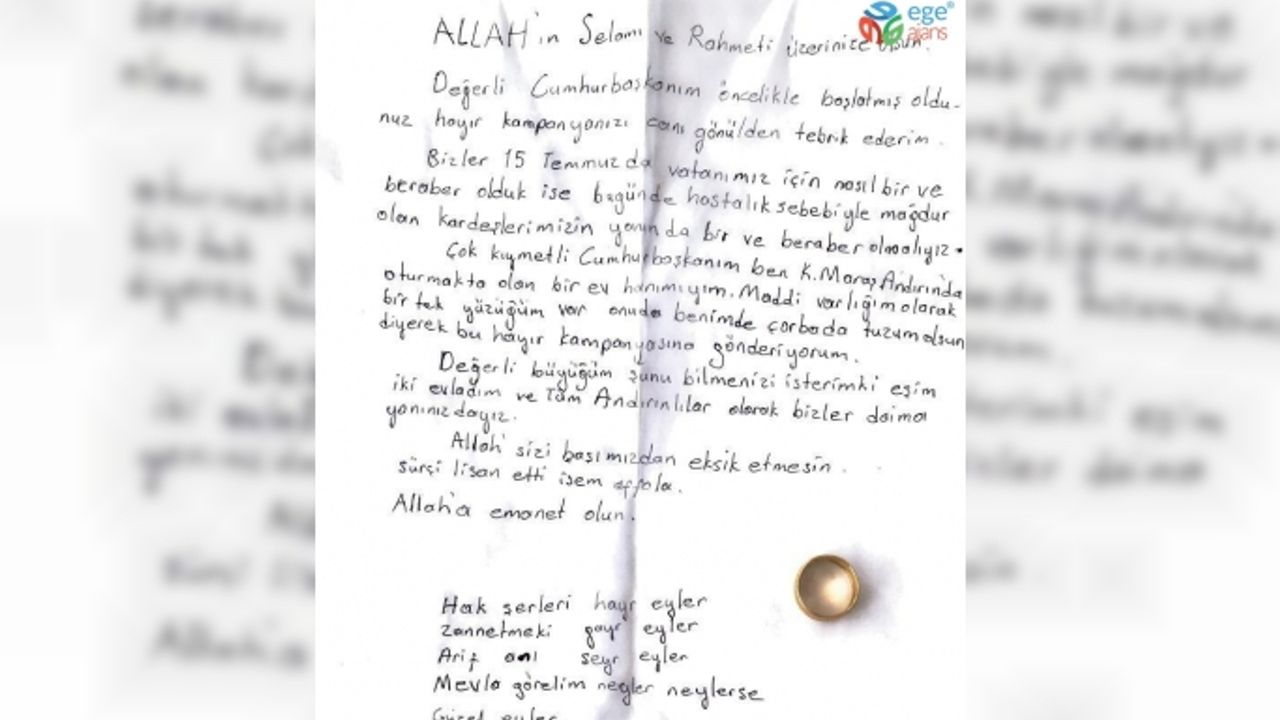 ege®
ajans
ALLAH'ın Selamı ve Rahmeti üzerinize olsun.
Değerli Cumhurbaşkanım öncelikle başlatmış oldu-
nuz hayır kampanyanızı canı gönülden tebrik ederim.
Bizler 15 Temmuzda vatanımız için nasıl bir ve
beraber olduk ise bugünde hastalık sebebiyle mağdur
olan kardeşlerimizin yanında bir ve beraber olmalıyız.
Çok kıymetli Cumhurbaşkanım ben K.Maraş Andırında
oturmakta olan bir ev hanımıyım. Maddi varlığım olarak
bir tek yüzüğüm var onuda benimde çorbada tuzum olsun
diyerek bu hayır kampanyasına gönderiyorum.
Değerli büyüğüm şunu bilmenizi isterimki eşim
iki evladım ve Tüm Andırınlılar olarak bizler daima
yanınızdayız.
Allah sizi başımızdan eksik etmesin.
sürçi lisan etti isem affola.
Allah'a emanet olun.
Hak şerleri hayr eyler
zannetmeki gayr eyler
Arif anı seyr eyler
Mevla görelim neyler neylerse
Güzel eyler.